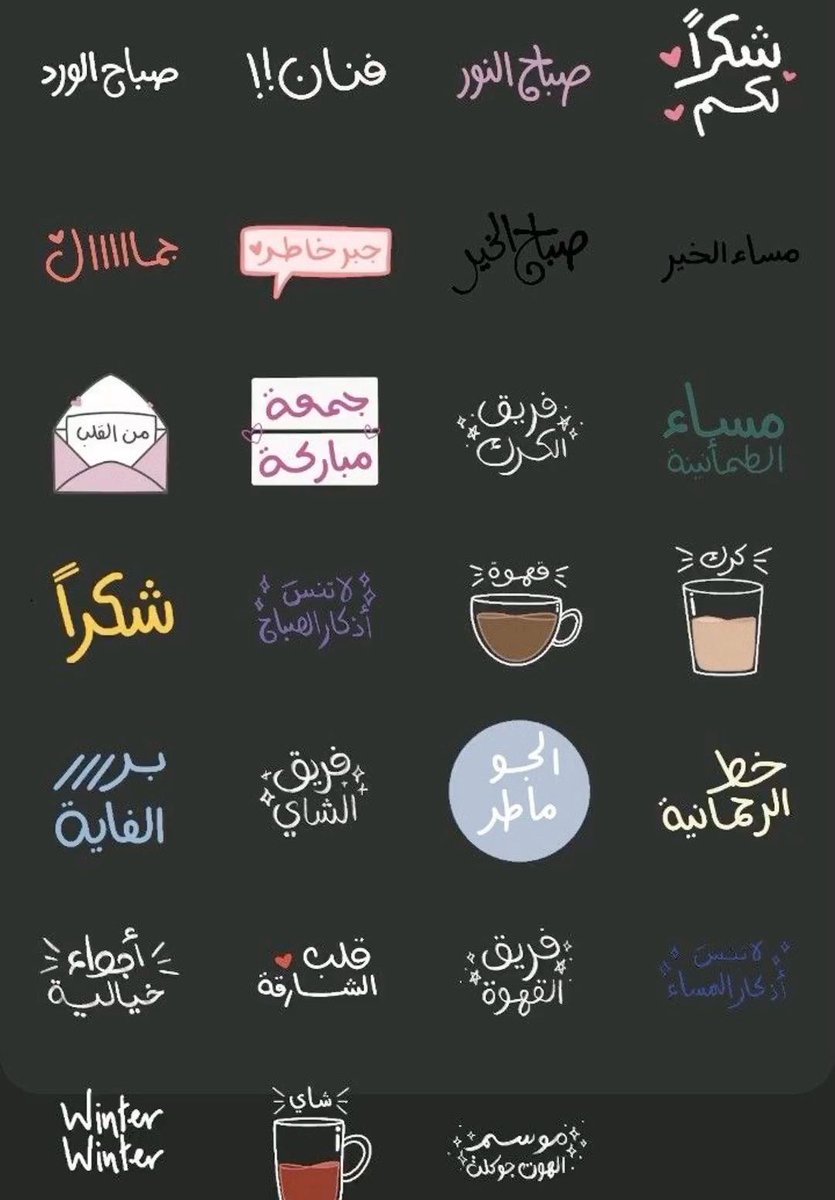 شكراً
لكم
صباح النور
فنان!!
صباح الورد
مساء الخير
صباح الخير
جبر خاطر
جمااااال
مساء
الطمأنينة
فريق
الكرك
جمعة
مباركة
من القلب
كرك
قهوة
لا تنسَ
أذكار الصباح
شكراً
خط
الرحمانية
الجو
ماطر
فريق
الشاي
بررر
الفاية
لا تنسَ
أذكار المساء
فريق
القهوة
قلب
الشارقة
أجواء
خيالية
موسم
الهوت جوكلت
شاي
Winter
Winter